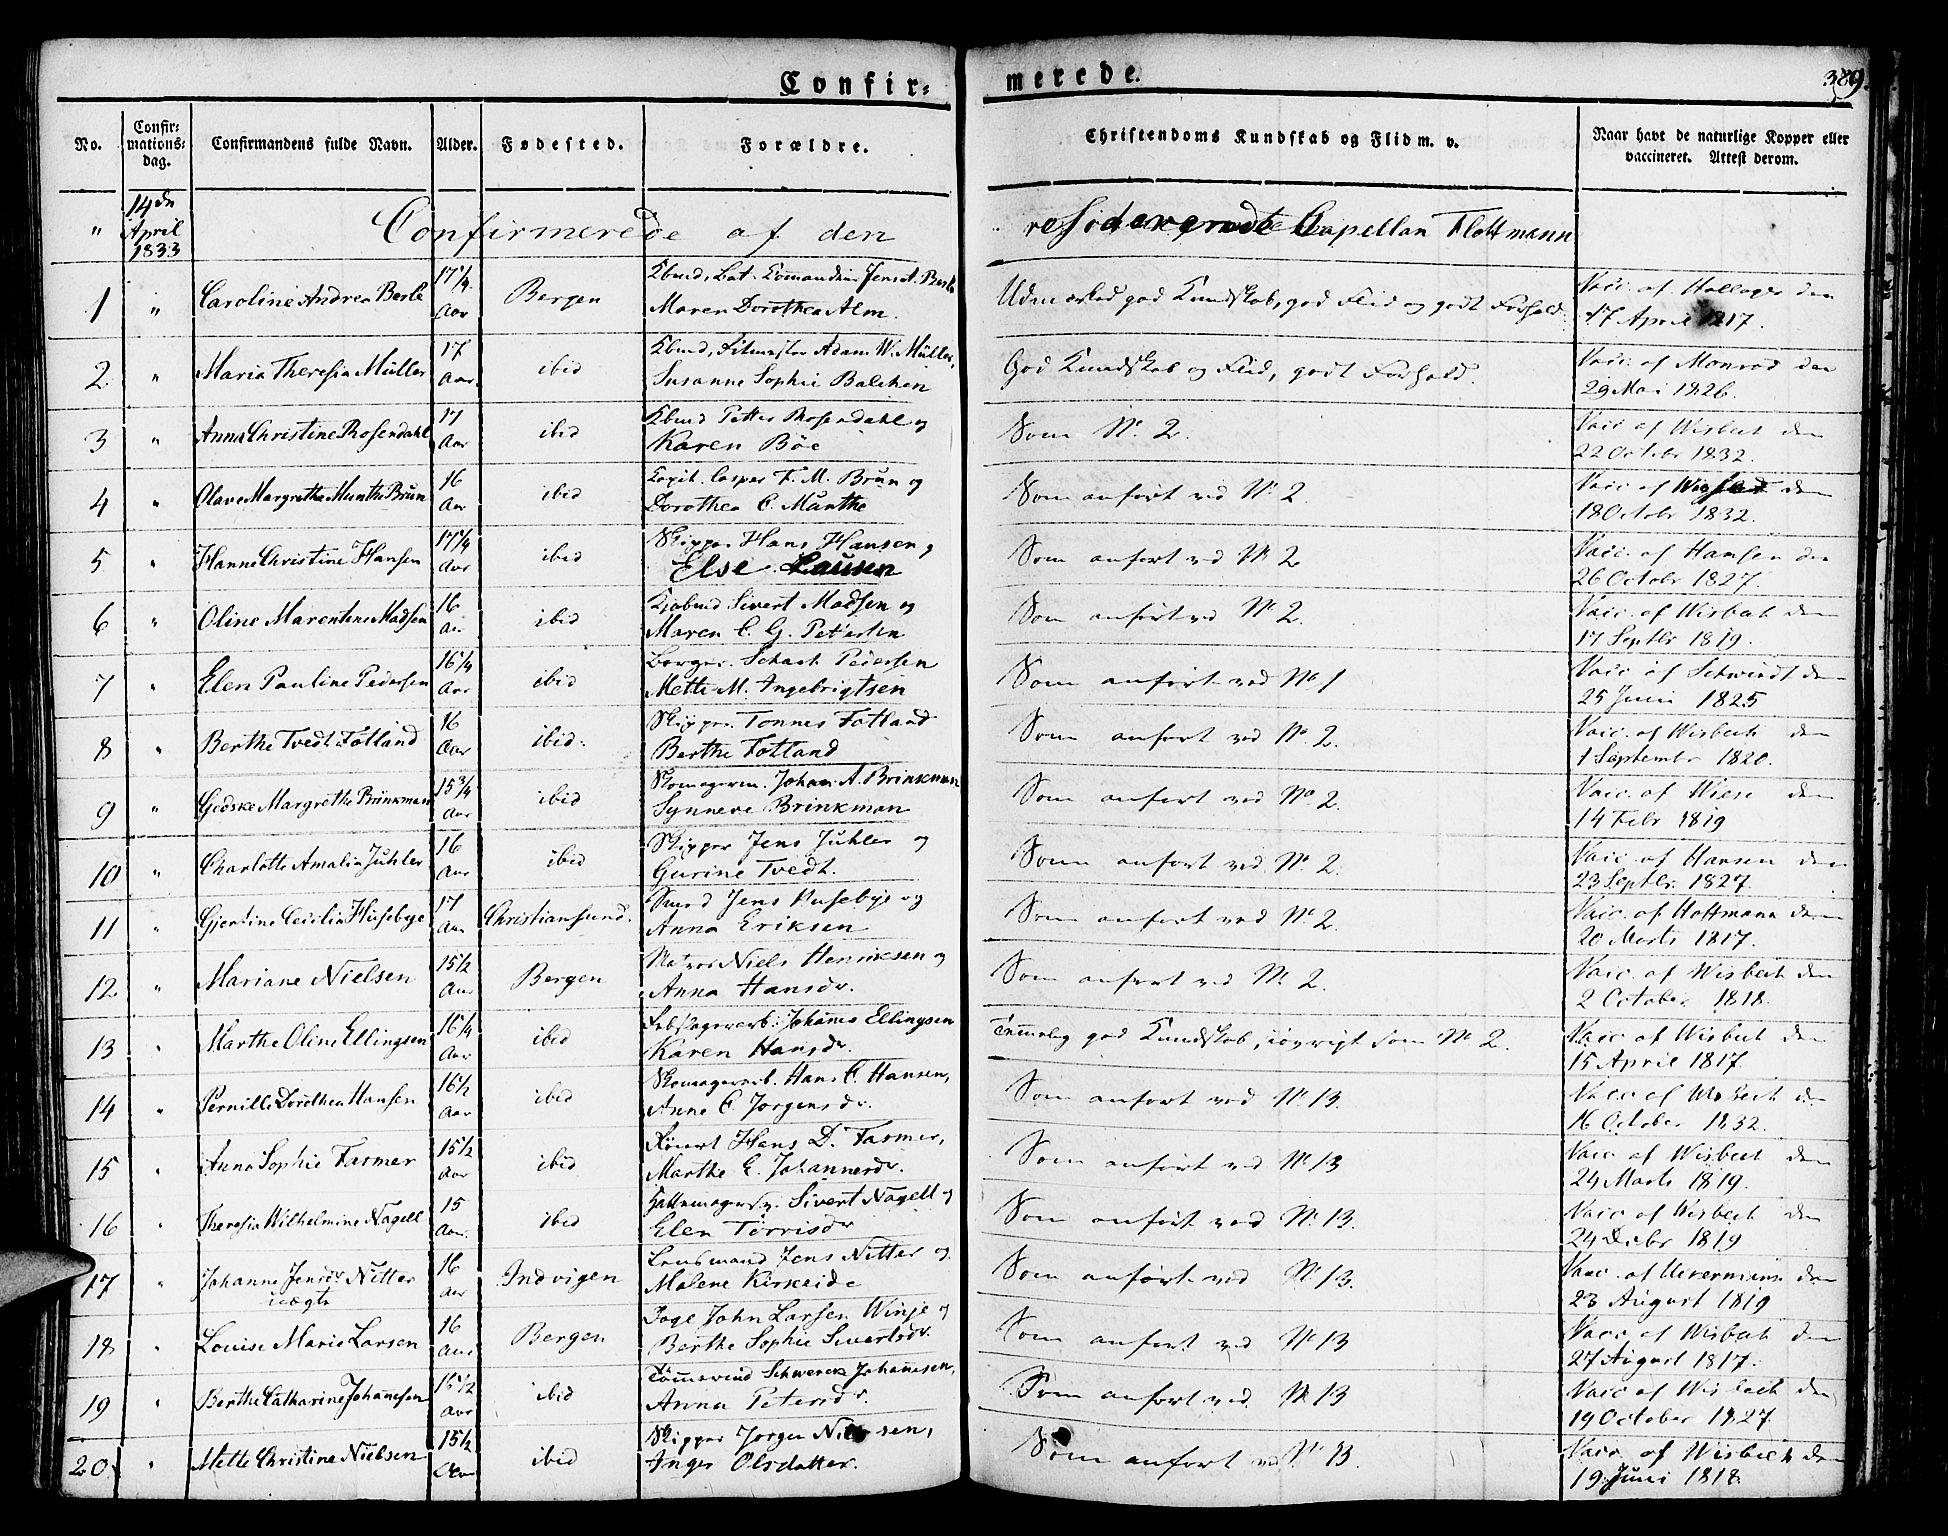 Confir-
merede.
389.
No.
Confir-
mations-
dag.
Confirmandens fulde Navn.
Alder.
Fødested.
Forældre.
Christendoms Kundskab og Flid m. v.
Naar havt de naturlige Kopper eller
vaccineret. Attest derom.
"
14de
April
1833
Confirmerede af den
residerende Capellan Flottmann
1 " Caroline Andrea Berle 17 1/4 Aar Bergen
Jens A. Berle
Maren Dorothea Alm.
Udmærked god Kundskab, god Flid og godt Forhold.
Vacc. af Hollager den
17 April 1817.
2 " Maria Theresia Müller 17 Aar ibid
Adam W. Müller,
Susanne Sophie Balchen
God Kundskab og Flid, godt Forhold.
Vacc. af Monrad den
29 Mai 1826.
3 " Anna Christine Rosendahl 17 Aar ibid
Petter Rosendahl og
Karen Böe
Som No. 2.
Vacc. af Wisbech den
22 Octobr 1832.
4 " Olave Margrethe Munthe Brun 16 Aar ibid
Capit. Casper F. M. Brun og
Dorothea C. Münthe
Som anført ved No. 2.
Vacc. af den
18 Octobr 1832.
5 " Hanne Christine Hansen 17 1/4 Aar ibid
Skipper Hans Hansen,
Else Lausen
Som anført ved No 2
Vacc. af Hansen den
26 Octobr 1827.
6 " Oline Marentine Madsen 16 Aar ibid
Sivert Madsen og
Maren C. G. Petersen
Som anført ved No 2.
Vacc. af Wisbech den
17 Septbr 1819.
7 " Elen Pauline Pedersen 16 1/4 Aar ibid
Borger Schach Pedersen
Mette M. Ingebrigtsen
Som anført ved No 1
Vacc. af Schwindt den
25 Juni 1825
8 " Berthe Tvedt Fotland 16 Aar ibid.
Skipper Tønnes Fotland
Berthe Fotland
Som anført ved No 2.
Vacc. af Wisbech den
1 September 1820.
9 " Gedske Margrethe Brinkman 15 3/4 Aar ibid
Johan A. Brinkman
Synneve Brinkman
Som anført ved No 2.
Vacc. af Wiese den
14 Febr 1819
10 " Charlotte Amalia Juhler 16 Aar ibid
Skipper Jens Juhler og
Gurine Tvedt.
Som anført ved No. 2.
Vacc. af Hansen den
23 Septbr. 1827.
11 " Gjertine Cecilia Husebye 17 Aar Christiansund.
Smed Jens Husebye og
Anna Eriksen
Som anført ved No. 2
Vacc. af Hoffmann den
20 Marts 1817.
12 " Mariane Nielsen 15 1/2 Aar Bergen
Matros Niels Henriksen og
Anna Hansdr.
Som anført ved No 2.
Vacc. af Wisbech den
2 October 1818.
13 " Marthe Oline Ellingsen 16 1/4 Aar ibid
Johannes Ellingsen
Karen Hansdr.
Temmelig god Kundskab, iøvrigt som No 2.
Vacc. af Wisbech den
15 April 1817.
14 " Pernille Dorothea Hansen 16 1/2 Aar ibid
Skomagersv. Hans C. Hansen,
Anne C. Jørgensdr.
Som anført ved No. 13.
Vacc. af Wisbech den
16 October 1832.
15 " Anna Sophie Farmer 15 1/2 Aar ibid
Hans D. Farmer,
Marthe E. Johannesdr.
Som anført ved No. 13
Vacc. af Wisbech den
24 Marts 1819.
16 " Theresia Wilhelmine Nagell 15 Aar. ibid
Hattemagersv. Sivert Nagell og
Elen Torrisdr
Som anført ved No. 13.
Vacc. af Wisbech den
24 Decbr 1819
17 " Johanne Jensdr Nitter
uægte
16 Aar Indvigen
Lensmand Jens Nitter og
Malene Kirkeide
Som anført ved No 13.
Vacc. af Uevermann den
23 August 1819
18 " Louise Marie Larsen 16 Aar Bergen
John Larsen Winje og
Berthe Sophie Sivertsdr.
Som anført ved No 13
Vacc. af Wisbech den
27 August 1817.
19 " Berthe Catharine Johannesen 15 1/2 Aar ibid
Schwerck Johannesen,
Anna Petersdr.
Som anført ved No 13
Vacc af Wisbech den
19 October 1827.
20 " Mette Christine Nielsen 15 1/2 Aar ibid
Skipper Jørgen Nielsen,
Anger Olsdatter.
Som anført ved No. 13.
Vacc. af Wisbech den
19 Juni 1818.